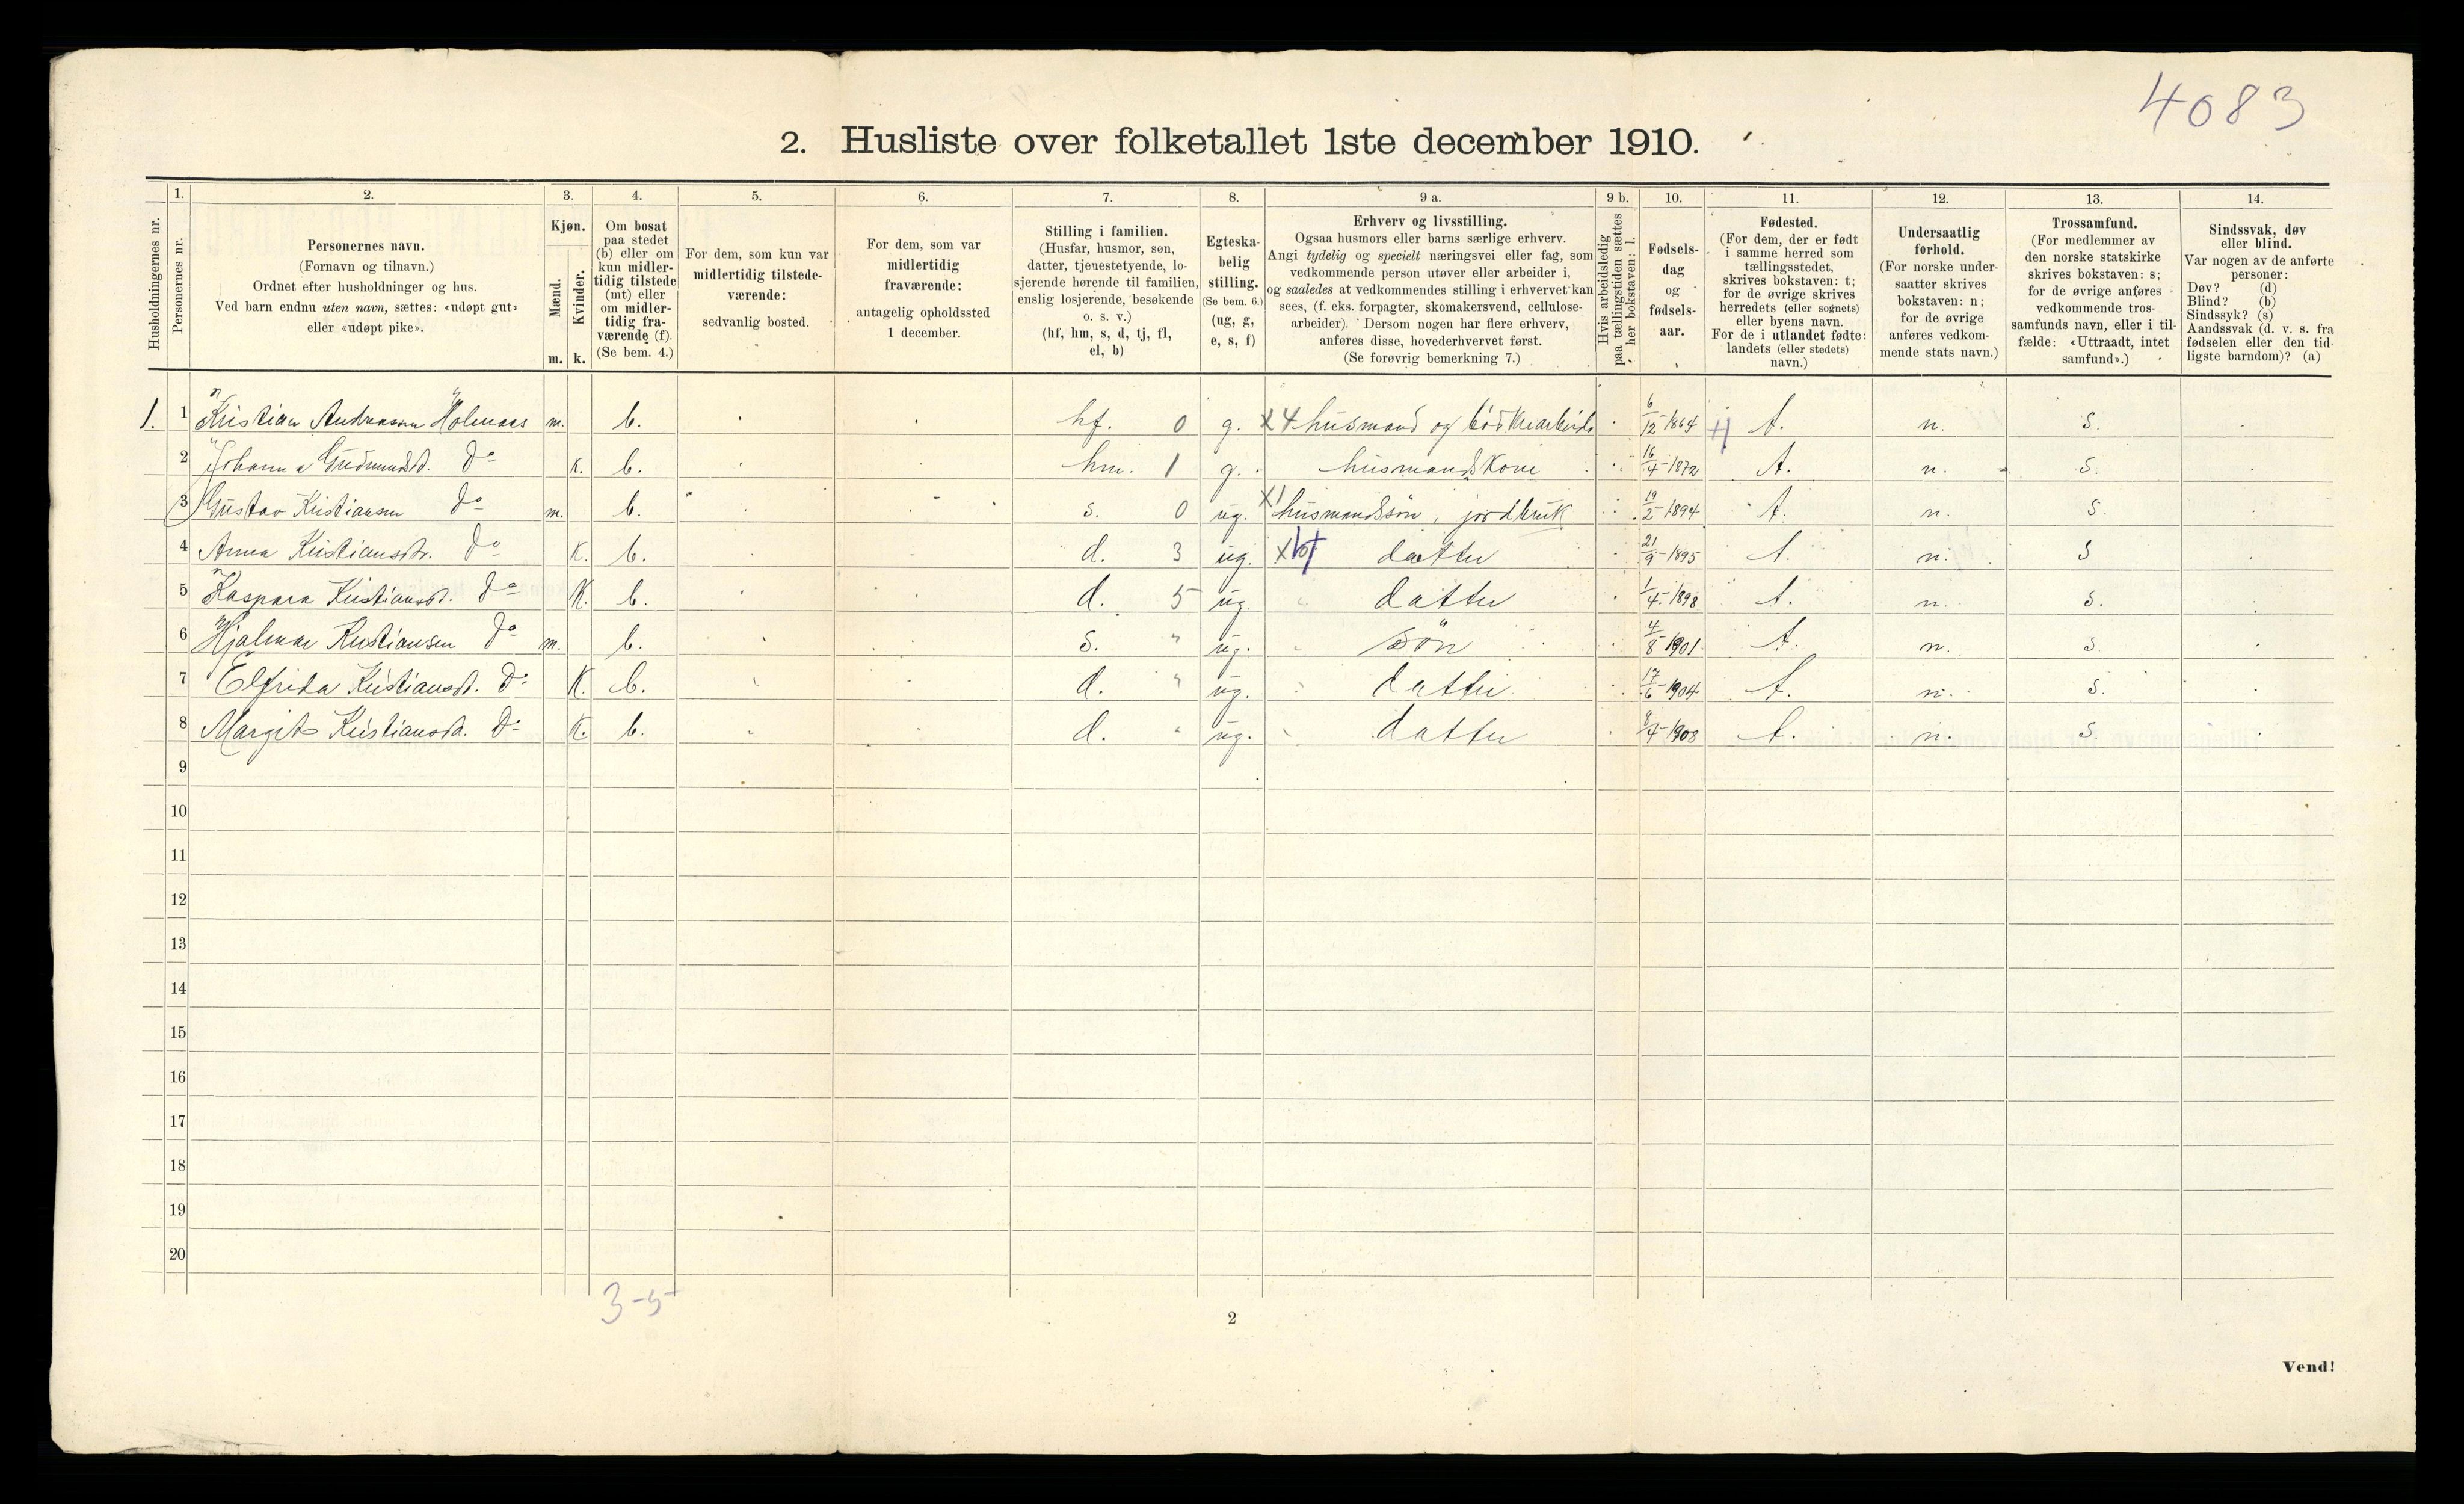 4083
2. Husliste over folketallet 1ste december 1910.
Husholdningernes nr.
1.
Personernes nr.
2.
Personernes navn.
(Fornavn og tilnavn.)
Ordnet efter husholdninger og hus.
Ved barn endnu uten navn, sættes: «udøpt gut»
eller «udøpt pike».
3.
Kjøn.
Mænd.
Kvinder.
m. k.
4.
Om bosat
paa stedet
(b) eller om
kun midler-
tidig tilstede
(mt) eller
om midler-
tidig fra-
værende (f).
(Se bem. 4.)
5.
For dem, som kun var
midlertidig tilstede-
værende:
sedvanlig bosted.
6.
For dem, som var
midlertidig
fraværende:
antagelig opholdssted
1 december.
7.
Stilling i familien.
(Husfar, husmor, søn,
datter, tjenestetyende, lo-
sjerende hørende til familien,
enslig losjerende, besøkende
o. s. v.)
(hf, hm, s, d, tj, fl,
el, b)
8.
Egteska-
belig
stilling.
(Se bem. 6.)
(ug, g,
e, s, f)
9 a.
Erhverv og livsstilling.
Ogsaa husmors eller barns særlige erhverv.
Angi tydelig og specielt næringsvei eller fag, som
vedkommende person utøver eller arbeider i,
og saaledes at vedkommendes stilling i erhvervet kan
sees, (f. eks. forpagter, skomakersvend, cellulose-
arbeider). Dersom nogen har flere erhverv,
anføres disse, hovederhvervet først.
(Se forøvrig bemerkning 7.)
9 b.
Hvis arbeidsledig
paa tællingstiden sættes
her bokstaven: l.
10.
Fødsels-
dag
og
fødsels-
aar.
11.
Fødested.
(For dem, der er født
i samme herred som
tællingsstedet,
skrives bokstaven: t;
for de øvrige skrives
herredets (eller sognets)
eller byens navn.
For de i utlandet fødte:
landets (eller stedets)
navn.)
12.
Undersaatlig
forhold.
(For norske under-
saatter skrives
bokstaven: n;
for de øvrige
anføres vedkom-
mende stats navn.)
13.
Trossamfund.
(For medlemmer av
den norske statskirke
skrives bokstaven: s;
for de øvrige anføres
vedkommende tros-
samfunds navn, eller i til-
fælde: «Uttraadt, intet
samfund».)
14.
Sindssvak, døv
eller blind.
Var nogen av de anførte
personer:
Døv? (d)
Blind? (b)
Sindssyk? (s)
Aandssvak (d. v. s. fra
fødselen eller den tid-
ligste barndom)? (a)
1. 1 Kristian Andreassen Holmaas m. b. hf. 0 g. X4 husmand og 6/12-1864 t. n. s.
2 Johanna Gudmundsd. do k. b. hm. 1 g. husmandskone 16/4-1872 t. n. s.
3 Gustav Kristiansen do m. b. s. 0 ug. X1 husmandssøn, jordbruk 19/2-1894 t. n. s.
4 Anna Kristiansdtr. do k. b. d. 3 ug. X datter 21/9-1895 t. n. s
5 Kaspara Kristiansd. do k. b. d. 5 ug. datter 1/4-1898 t. n. s.
6 Hjalmar Kristiansen do m. b. s. " ug. søn 4/8-1901 t. n. s.
7 Elfrida Kristiansd. do k. b. d. " ug. datter 17/6-1904 t. n. s.
8 Margit Kristiansd. do k. b. d. " ug. datter 8/4-1908 t. n. s.
9
10
11
12
13
14
15
16
17
18
19
20
3-5
2
Vend!